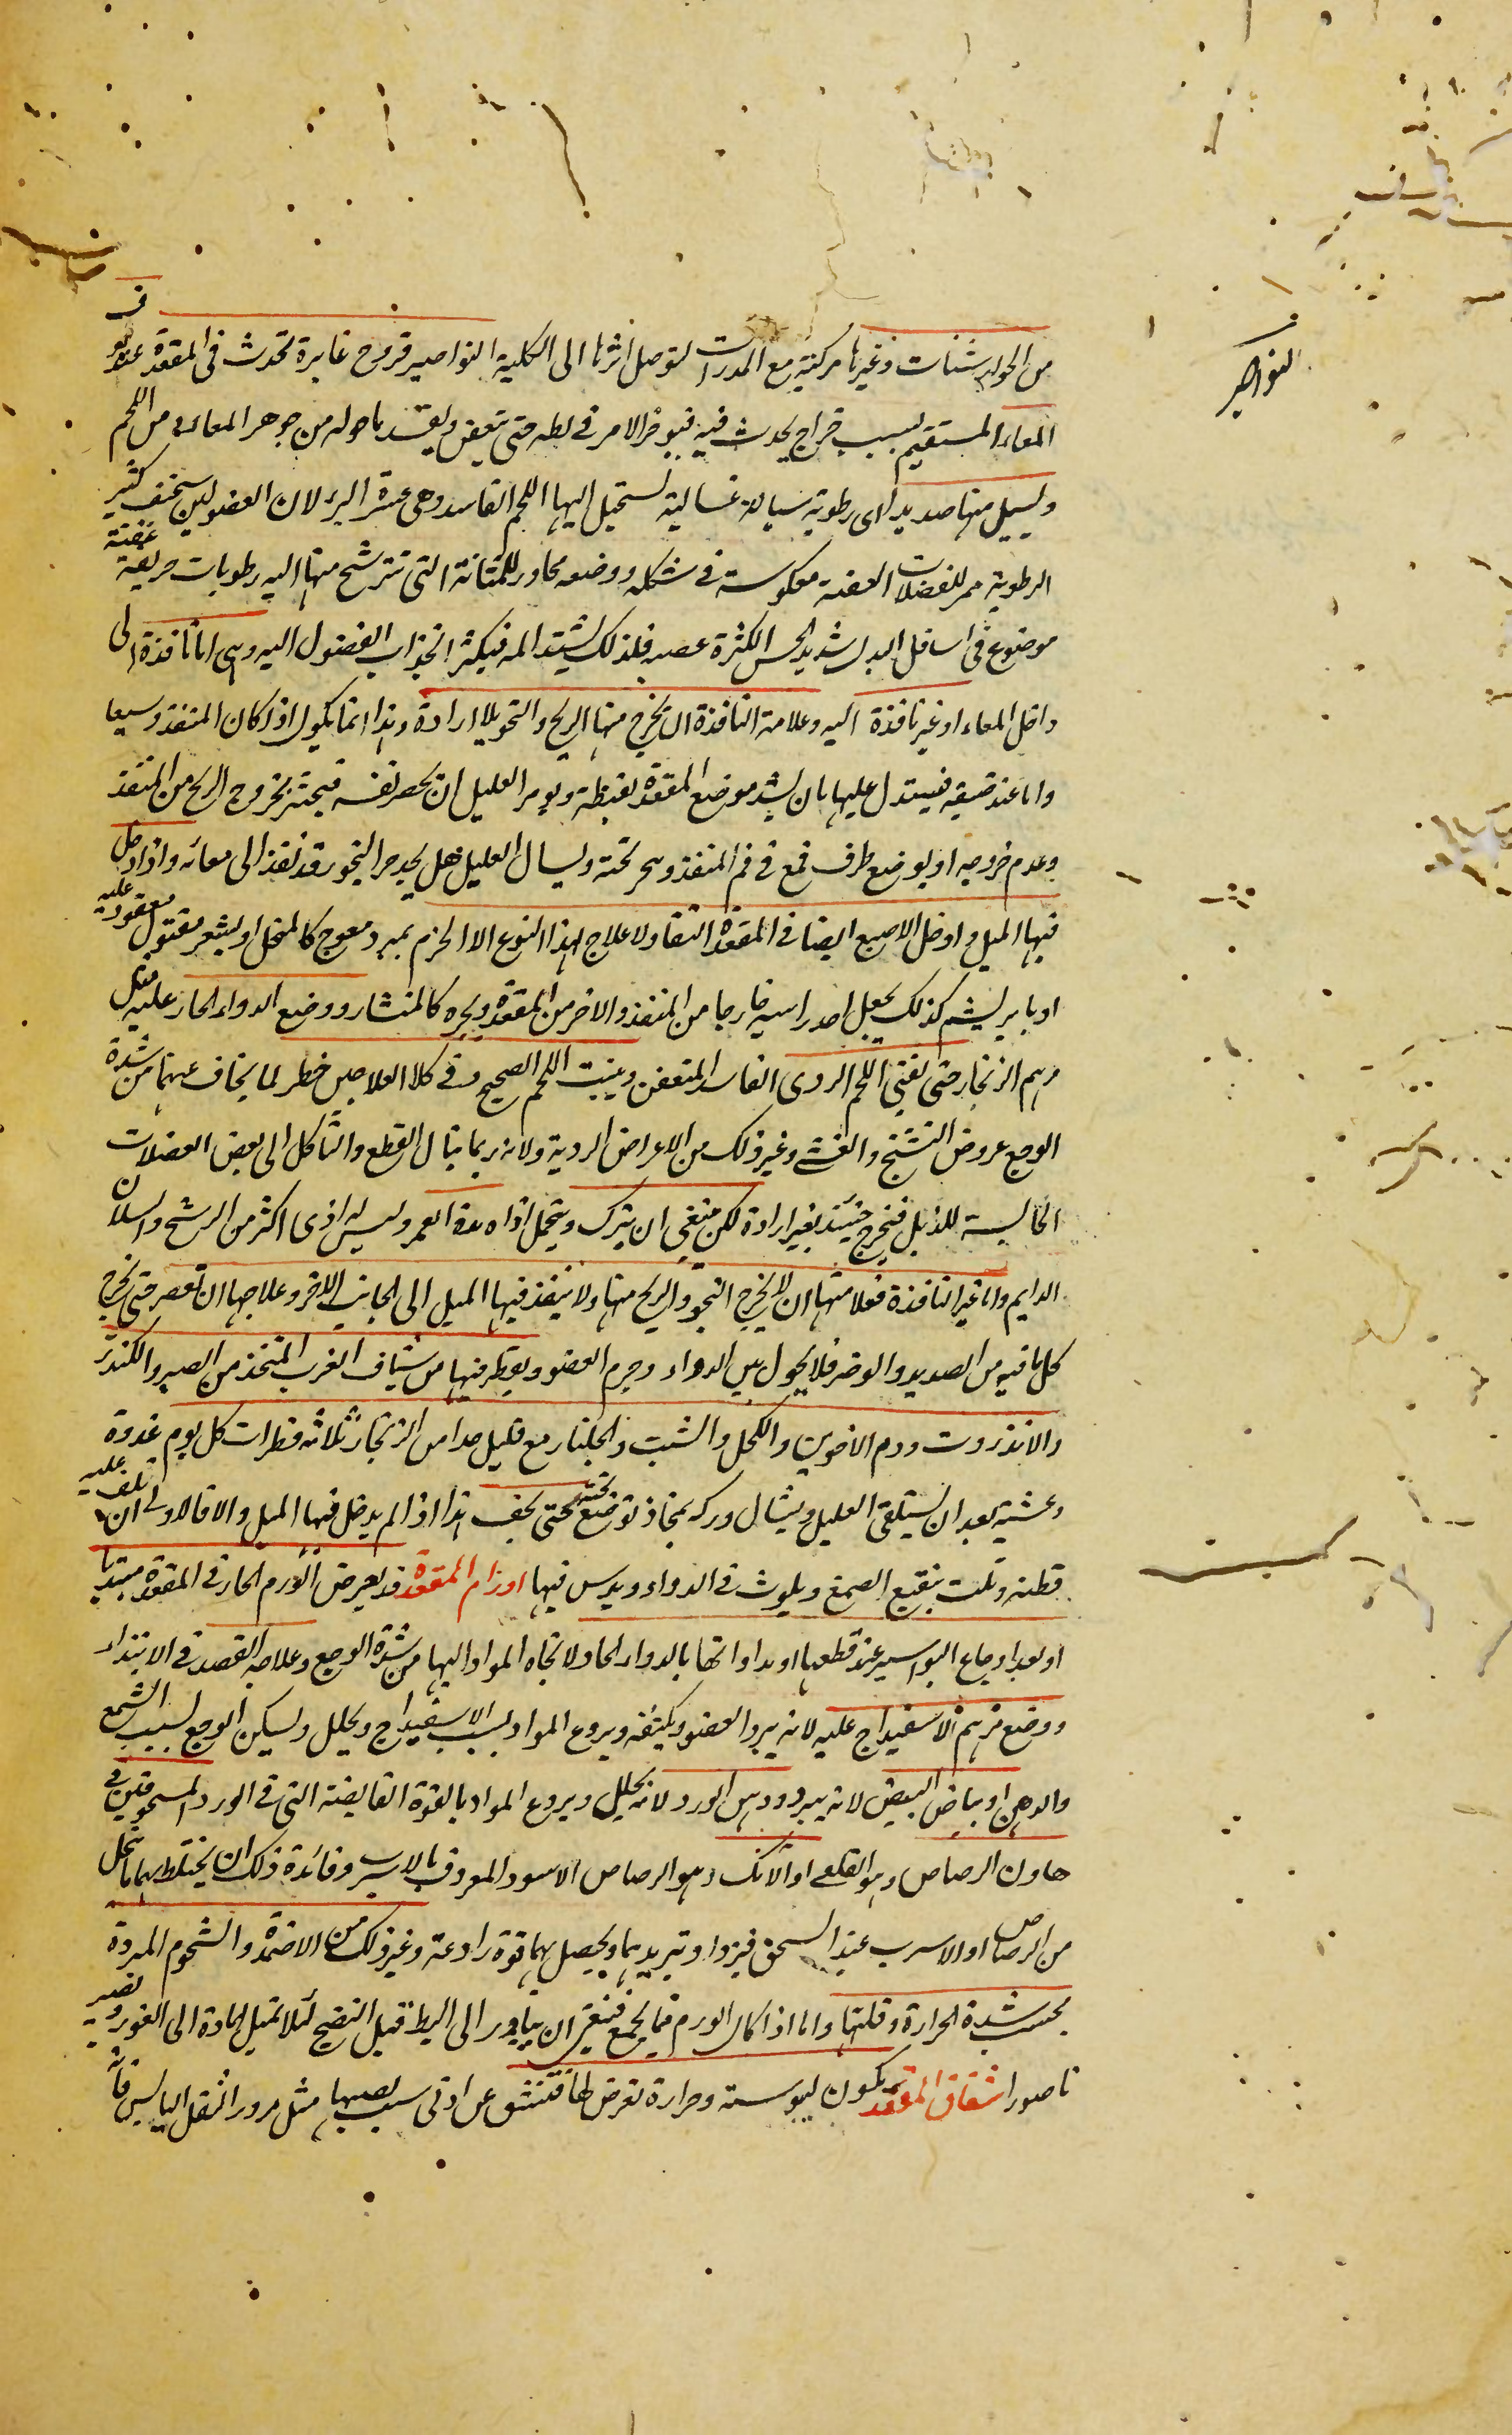 النواصير
من الجوارشنات وغيرها مركبة مع المدرات لتوصل اثرها الى الكلية النواصير قروح غايرة تحدث في المقعدة عند
المعاء المستقيم بسبب خراج يحدث فيه فيوخر الامر في بطه حتى يتعفن ويفسد ما حوله من جوهر المعاء و من اللحم
ويسيل منها صديد اى رطوبة سيالة غسالية تستحيل اليها اللحم الفاسد وهى عسرة البرء لان العضو لين سخيف كثير
الرطوبة ممر للفضلات العفنة معكوسة في شكله ووضعه مجاور للمثانة التى تترشح منها اليه رطوبات حريفة عفنة
موضوع في اسافل البدن شديد الحس لكثرة عصبه فلذلك يشتد المه فيكثر انجذاب الفضول اليه وهى اما نافذة الى
داخل المعاء او غير نافذة اليه وعلامة النافذة ان يخرج منها الريح والنجو بلا ارادة وهذا انما يكون اذا كان المنفذ وسيعا
واما عند ضيقه فيستدل عليها بان يشد موضع المقعدة بقطنة ويومر العليل ان يحصر نفسه فيحس بخروج الريح من المنفذ
وعدم خروجه او يوضع طرف قمع في فم المنفذ ويبخر تحته ويسال العليل هل يجد حر البخور قد نفذ الى معائه واذا دخل
فيها الميل وادخل الاصبع ايضا في المقعدة التقاء ولا علاج لهذا النوع الا الخرم بمبرد معوج كالمنجل او بشعر مفتول معقود عليه
او بابريشم كذلك يجعل احد راسيه خارجا من المنفذ والاخر من المقعدة ويجره كالمنشار ووضع الدواء الحار عليه مثل
مرهم الزنجار حتى يفنى اللحم الردى الفاسد المتعفن وينبت اللحم الصحيح وفى كلا العلاجين خطر لما يخاف عنهما من شدة
الوجع عروض التشنج والغشى وغير ذلك من الاعراض الردية ولانه ربما ينال القطع والتاكل الى بعض العضلات
الحابسة للزبل فيخرج حينئذ بغير ارادة لكن ينبغى ان يترك ويتحمل اذاه مدة العمر وليس له اذى اكثر من الرشح والسيلان
الدايم واما غير النافذة فعلامتها ان لا يخرج النجو والريح منها ولا ينفذ فيها الميل الى الجانب الاخر وعلاجها ان تعصر حتى يخرج
كل ما فيه من الصديد والوضر فلا يحول بين الدواء وجرم العضو ويقطر فيها من شياف الغرب المتخذ من الصبر والكندر
والانزروت ودم الاخوين والكحل والشب والجلنار مع قليل جدا من الزنجار ثلاثة قطرات كل يوم غدوة
وعشية بعد ان يستلقى العليل ويشال وركه بمخاذ توضع تحته حتى يجف هذا اذا لم يدخل فيها الميل والا فالاولى ان تلف عليه
قطنة وتلت بنقيع الصمغ ويلوث في الدواء ويدس فيها اورام المقعدة قد يعرض الورم الحار في المقعدة مبتديا
او بعد اوجاع البواسير عند قطعها او مداواتها بالدواء الحاد لاتجاه المواد اليها من شدة الوجع وعلاجه الفصد في الابتداء
ووضع مرهم الاسفيداج عليه لانه يبرد العضو ويكثفه ويردع المواد بسبب الاسفيداج ويحلل ويسكن الوجع بسبب الشمع
والدهن او بياض البيض لانه يبرد ودهن الورد لانه يحلل ويردع المواد بالقوة القابضة التى في الورد المسحوقين في
هاون الرصاص وهو القلعى او الآنك وهو الرصاص الاسود المعروف بالاسرب وفائدة ذلك ان يختلط بهما ما ينحل
من الرصاص او الاسرب عند السحق فيزداد تبريدهما ويحصل بهما قوة رادعة وغير ذلك من الاضمدة والشحوم المبردة
بحسب شدة الحرارة وقلتها واما اذا كان الورم مما يجمع فينبغى ان يبادر الى البط قبل النضج لئلا تميل المادة الى الغور ويصير
ناصورا شقاق المقعدة يكون ليبوسة وحرارة تعرض لها فتنشق عن ادنى سبب يصيبها مثل مرور الثفل اليابس فانه